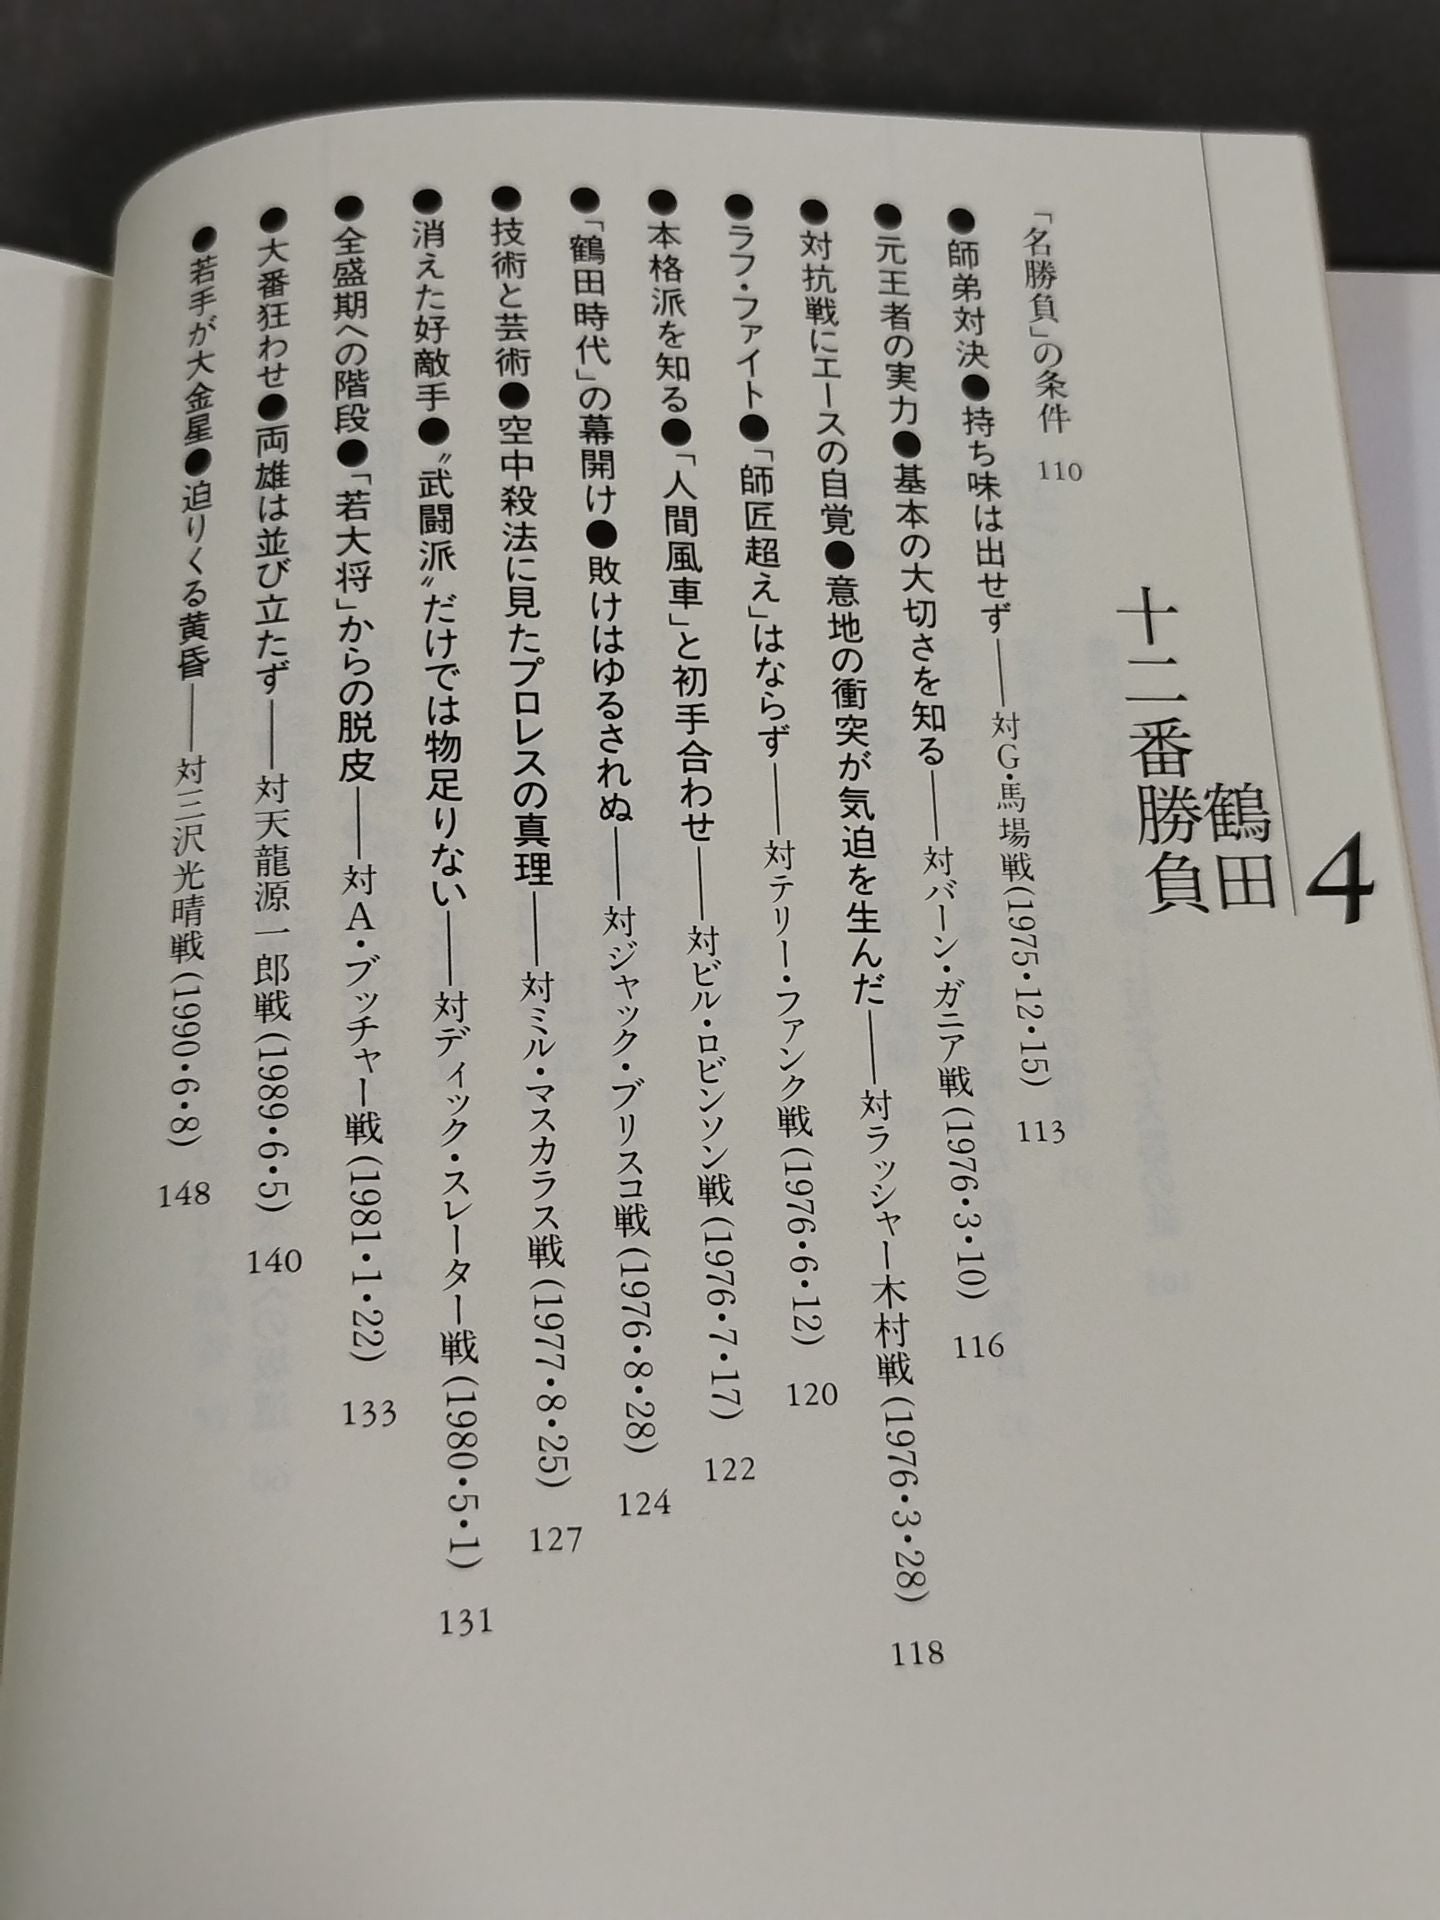 4
鶴田
十二番勝負
「名勝負」の条件 110
●師弟対決●持ち味は出せず——対G・馬場戦(1975・12・15) 113
●元王者の実力●基本の大切さを知る——対バーン・ガニア戦(1976・3・10) 116
●対抗戦にエースの自覚●意地の衝突が気迫を生んだ——対ラッシャー木村戦(1976・3・28) 118
●ラフ・ファイト●「師匠超え」はならず——対テリー・ファンク戦(1976・6・12) 120
●本格派を知る●「人間風車」と初手合わせ——対ビル・ロビンソン戦(1976・7・17) 122
●「鶴田時代」の幕開け●敗けはゆるされぬ——対ジャック・ブリスコ戦(1976・8・28) 124
●技術と芸術●空中殺法に見たプロレスの真理——対ミル・マスカラス戦(1977・8・25) 127
●消えた好敵手●〝武闘派〟だけでは物足りない——対ディック・スレーター戦(1980・5・1) 131
●全盛期への階段●「若大将」からの脱皮——対A・ブッチャー戦(1981・1・22) 133
●大番狂わせ●両雄は並び立たず——対天龍源一郎戦(1989・6・5) 140
●若手が大金星●迫りくる黄昏——対三沢光晴戦(1990・6・8) 148